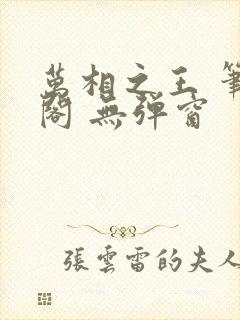 萬相之王 筆
閣 無彈窗
張雲雷的夫人